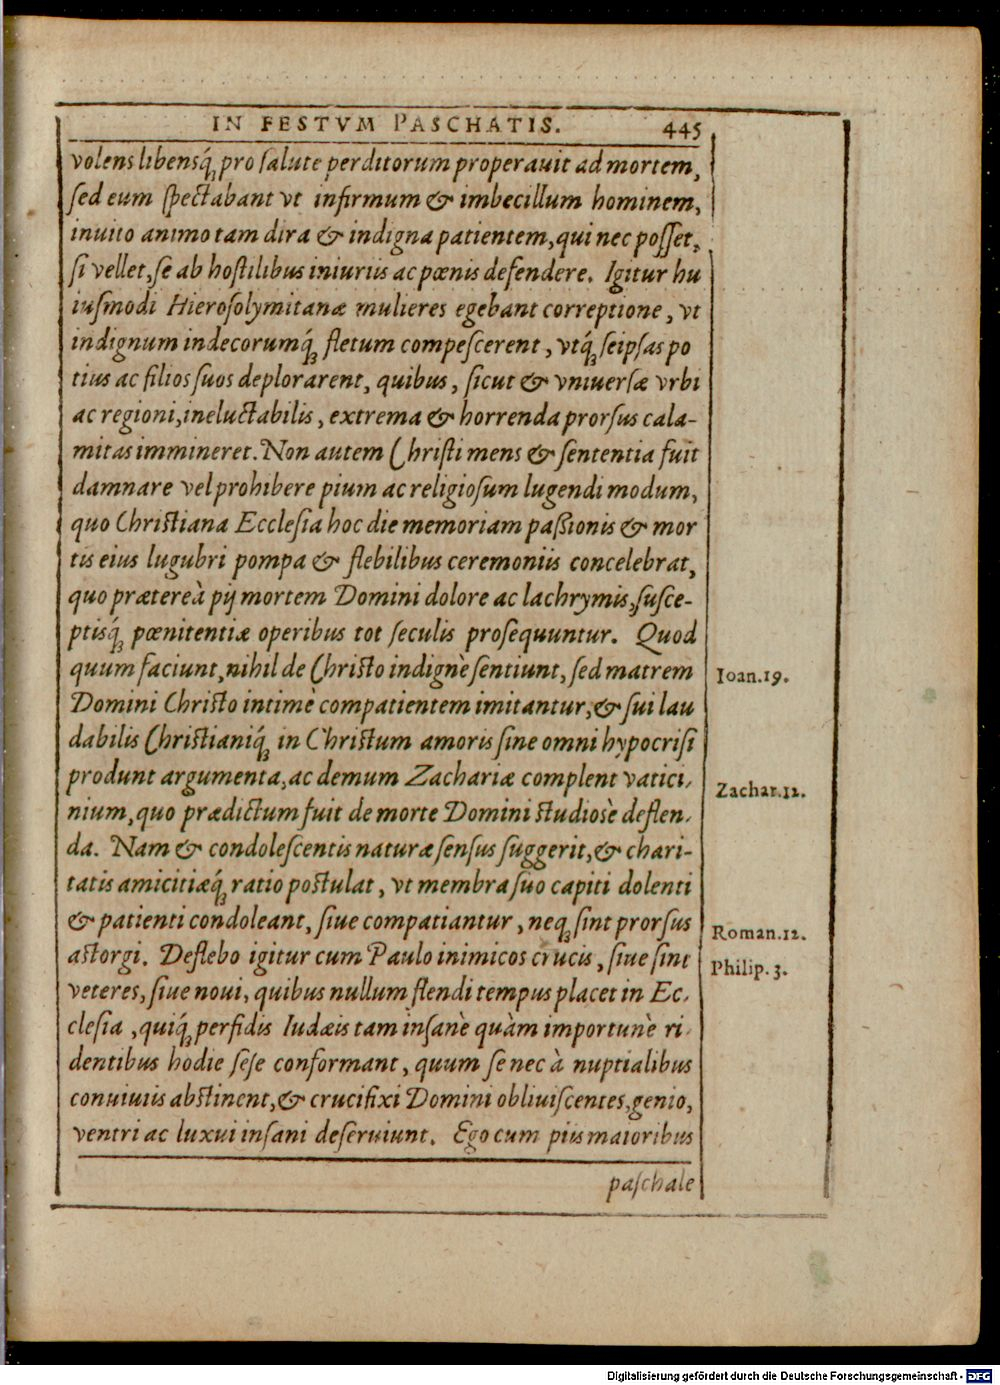 IN FESTVM PASCHATIS. 445
volens libensq́ꝫ pro ſalute perditorum properauit ad mortem,
ſed eum ſpectabant vt infirmum & imbecillum hominem,
inuito animo tam dira & indigna patientem, qui nec poſſet,
ſi vellet, ſe ab hoſtilibus iniuriis ac pœnis defendere. Igitur hu
iuſmodi Hieroſolymitanæ mulieres egebant correptione, vt
indignum indecorumq́ꝫ fletum compeſcerent, vtq́ꝫ ſeipſas po
tius ac filios ſuos deplorarent, quibus, ſicut & vniuerſæ vrbi
ac regioni, ineluctabilis, extrema & horrenda prorſus cala-
mitas immineret. Non autem Chriſti mens & ſententia fuit
damnare vel prohibere pium ac religioſum lugendi modum,
quo Chriſtiana Eccleſia hoc die memoriam paßionis & mor
tis eius lugubri pompa & flebilibus ceremoniis concelebrat,
quo prætereà pij mortem Domini dolore ac lachrymis, ſuſce-
ptisq́ꝫ pœnitentiæ operibus tot ſeculis proſequuntur. Quod
quum faciunt, nihil de Chriſto indignè ſentiunt, ſed matrem
Ioan.19.
Domini Chriſto intimè compatientem imitantur, & ſui lau
dabilis Chriſtianiq́ꝫ in Chriſtum amoris ſine omni hypocriſi
produnt argumenta, ac demum Zachariæ complent vatici-
Zachar.12.
nium, quo prædictum fuit de morte Domini ſtudiosè deflen-
da. Nam & condoleſcentis naturæ ſenſus ſuggerit, & chari-
tatis amicitiæq́ꝫ ratio poſtulat, vt membra ſuo capiti dolenti
& patienti condoleant, ſiue compatiantur, neqꝫ ſint prorſus
Roman.12.
aſtorgi. Deflebo igitur cum Paulo inimicos crucis, ſiue ſint
Philip.3.
veteres, ſiue noui, quibus nullum flendi tempus placet in Ec-
cleſia, quiq́ꝫ perfidis Iudæis tam inſanè quàm importunè ri-
dentibus hodie ſeſe conformant, quum ſe nec à nuptialibus
conuiuiis abſtinent, & crucifixi Domini obliuiſcentes, genio,
ventri ac luxui inſani deſeruiunt. Ego cum piis maioribus
paſchale
Digitalisierung gefördert durch die Deutsche Forschungsgemeinschaft - DFG